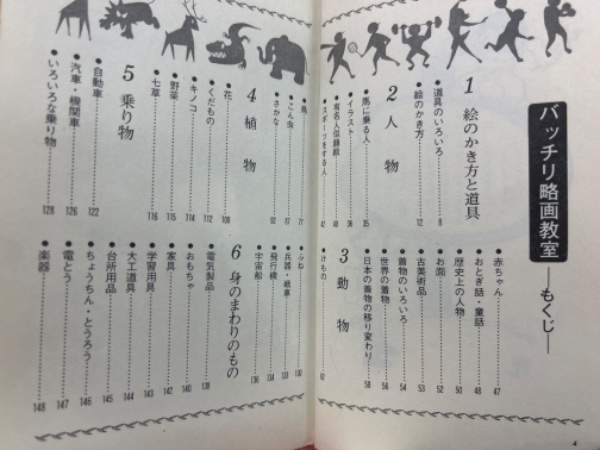 バッチリ略画教室 ―もくじ―
1 絵のかき方と道具
●道具のいろいろ……8
●絵のかき方……12
2 人物
●馬に乗る人……35
●イラスト……36
●有名人似顔絵……40
●スポーツをする人……42
●赤ちゃん……47
●おとぎ話・童話……48
●歴史上の人物……50
●お面……52
●古美術品……53
●着物のいろいろ……54
●世界の着物……56
●日本の着物の移り変わり……58
3 動物
●けもの……62
●鳥……77
●こん虫……87
●さかな……92
4 植物
●花……108
●くだもの……112
●キノコ……114
●野菜……115
●七草……116
5 乗り物
●自動車……122
●汽車・機関車……126
●いろいろな乗り物……128
●ふね……130
●兵器・戦車……133
●飛行機……134
●宇宙船……136
6 身のまわりのもの
●電気製品……138
●おもちゃ……140
●家具……142
●学習用具……143
●大工道具……144
●台所用品……145
●ちょうちん・とうろう……146
●電とう……147
●楽器……148
4